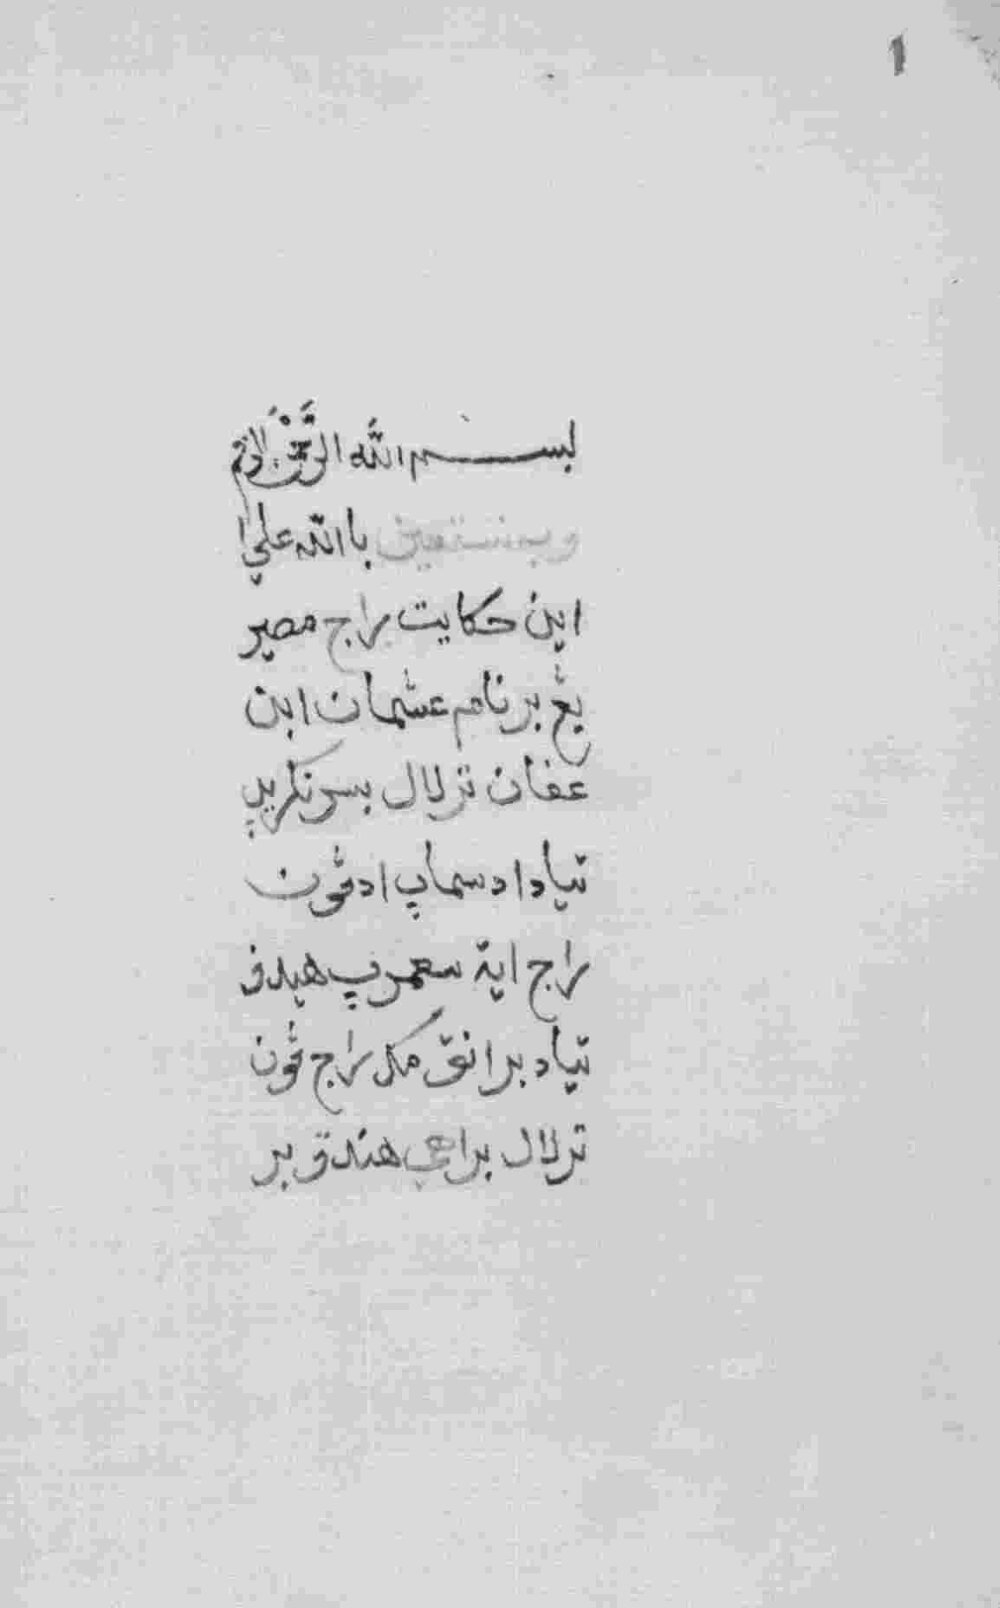 1
بســـم اللّه الرَّحمٰن الرَّحيم
وبه نستعين باالله علي
اين حكايت راج مصير
يڠ برنام عشمان ابن
عفان ترلال بسر نكريڽ
تياد ادسماڽ ادڤون
راج اية سعمرڽ هيدف
تياد برانق مک راج ڤون
ترلال براهي هندق بر